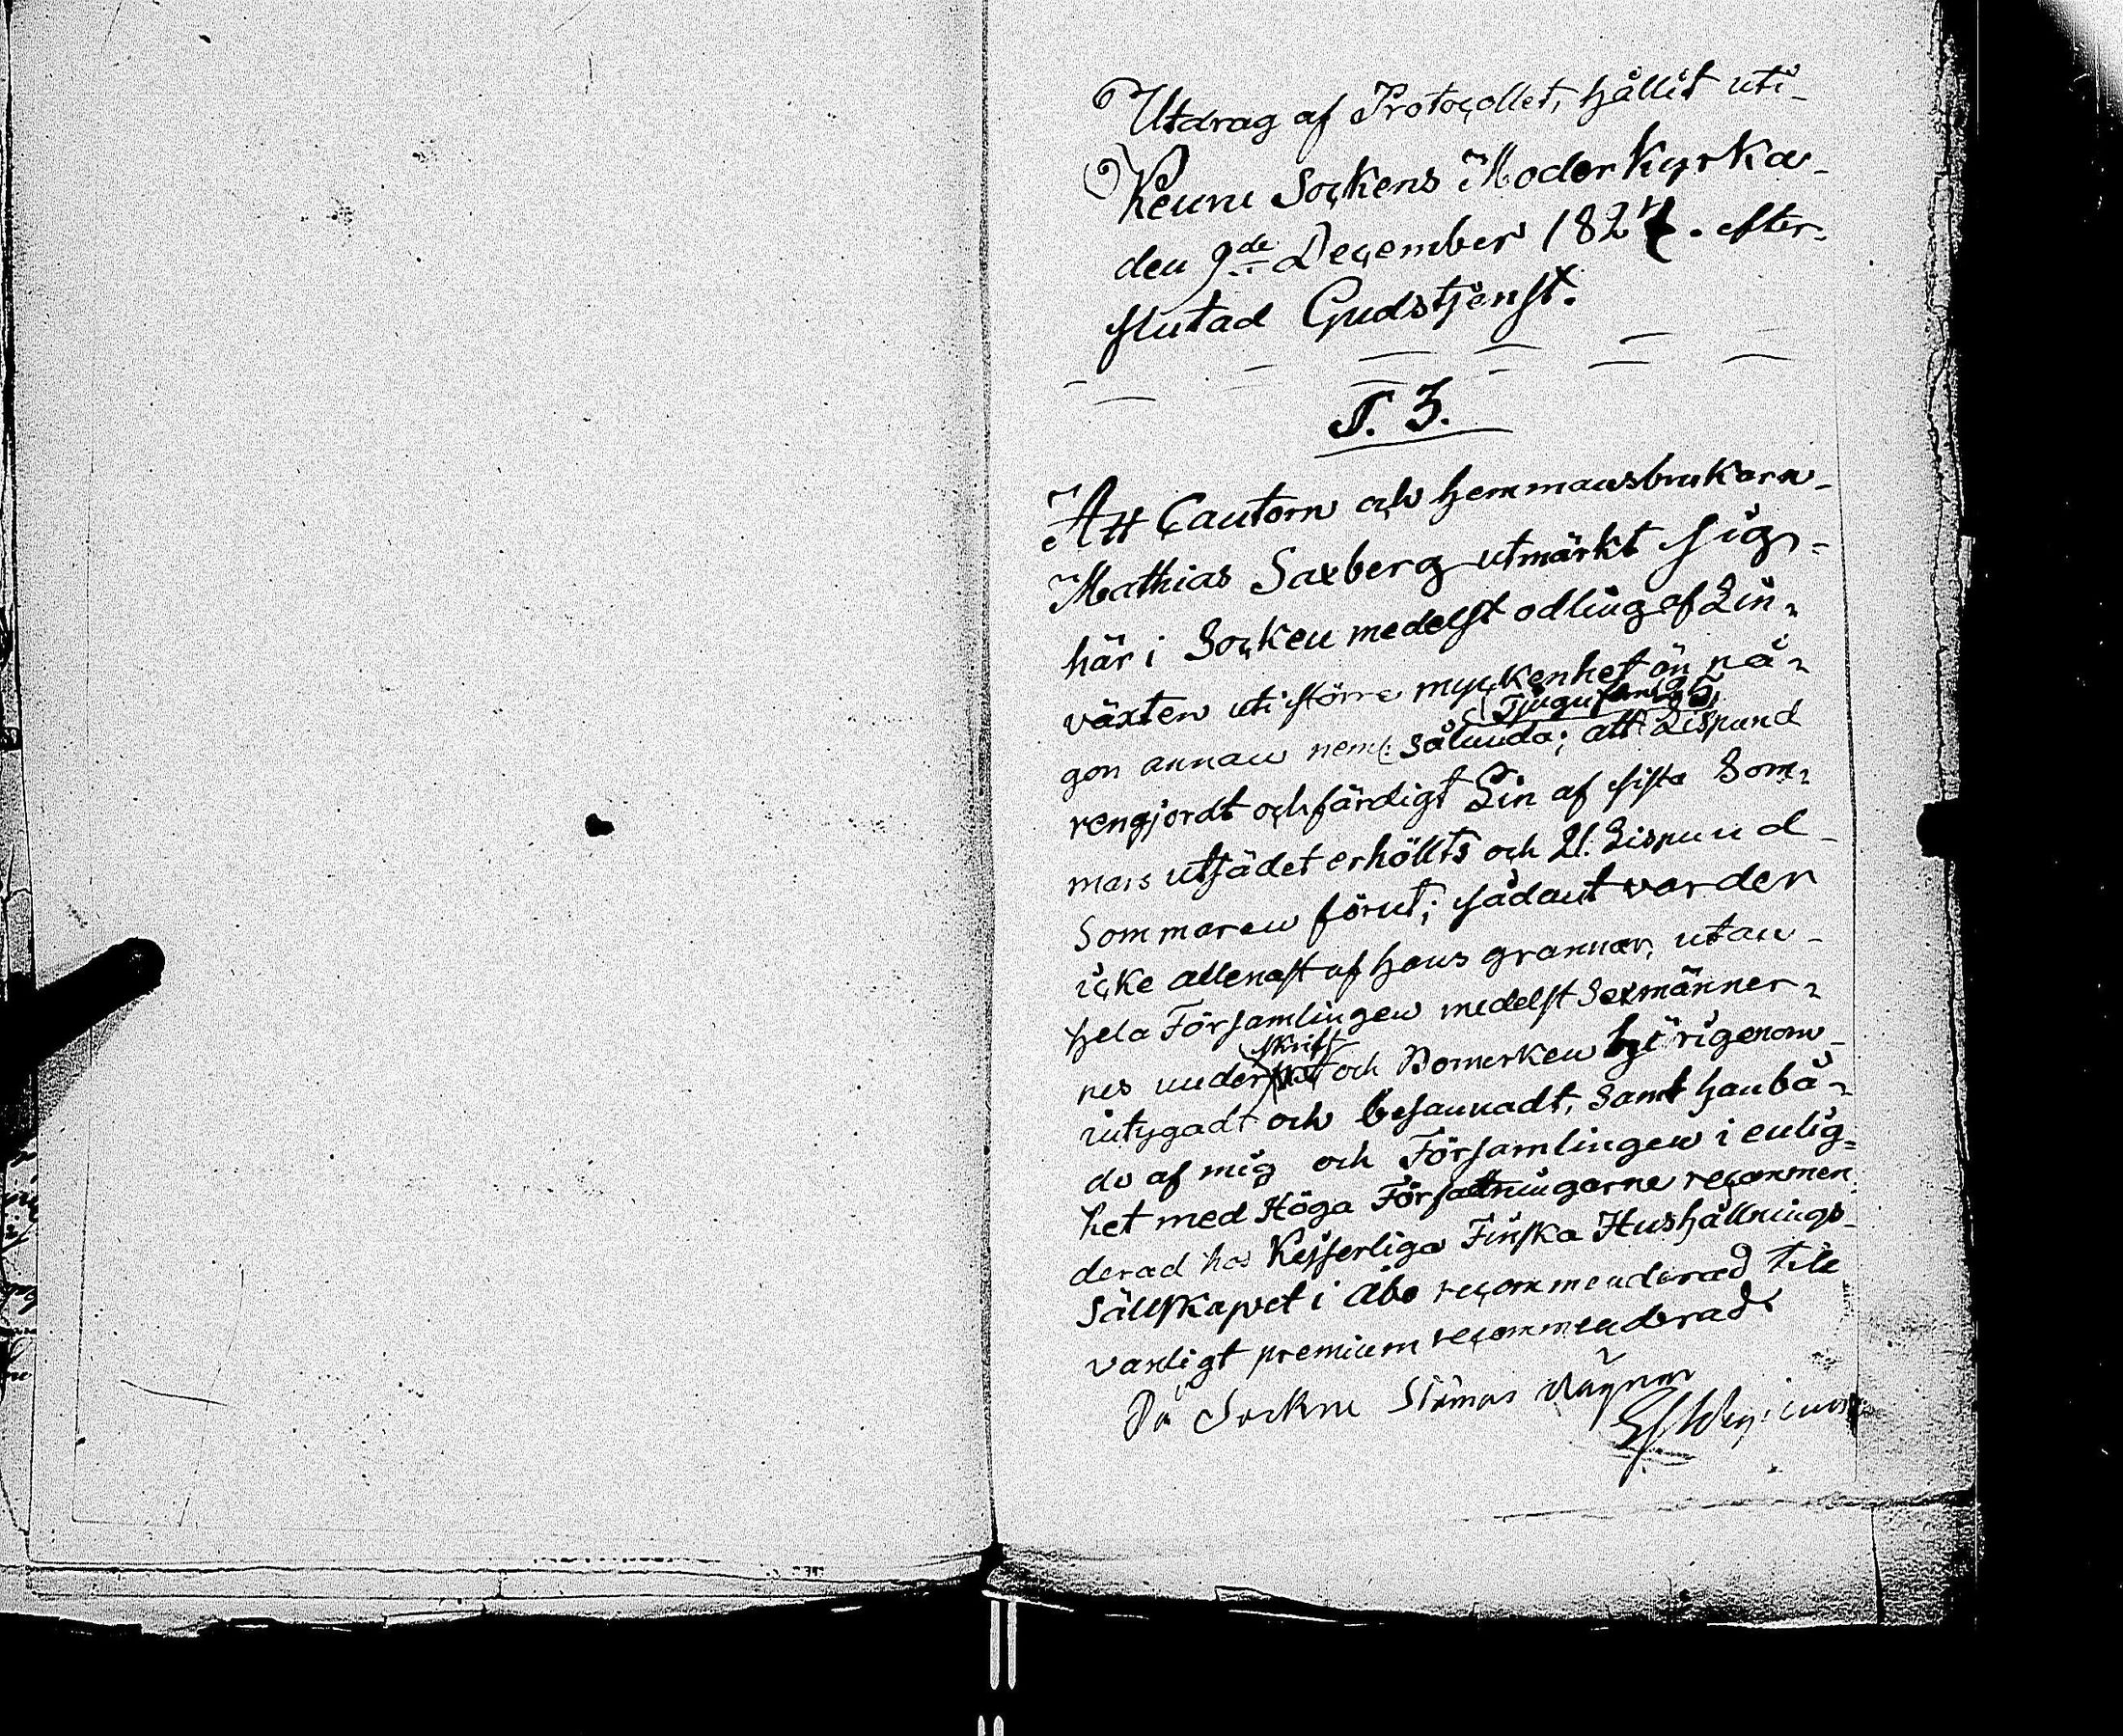 Utdrag af Protocollet, hållit uti
Keuru Sockens Moder Kyrka
den 9de December 1827. efter
slutad Gudstjenst.
§. 3.
Att Cantorn och hemmansbrukarn
Mathias Saxberg utmärkt sig
här i Socken medelst odling af Lin-
växten uti större myckenhet än nå-
Tjugufem 25
gon annan neml: sålunda; att Lispund
rengjordt och färdigt Lin af sista Som-
mars utsädet erhållits och 21. Lispund
Sommaren förut; sådant varder
icke allenast af hans grannar, utan
hela Församlingen medelst Sexmänner-
skrift
nes under och Bomerken härigenom
intygadt och besannadt, samt han bå-
de af mig och Församlingen i enlig-
het med Höga Författningarne recommen-
derad hos Kejserliga Finska Hushållnings
Sällskapet i Åbo recommenderad till
vanligt premium recommenderad.
På Sockne Stämmans vägnar